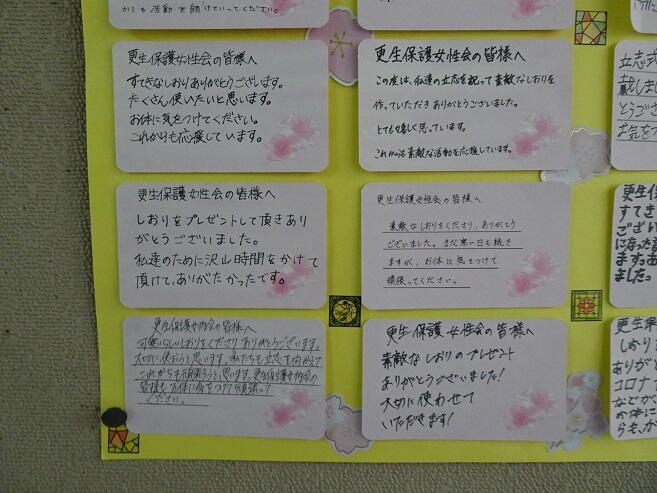 からも活動を続けていってください。
更生保護女性会の皆様へ
すてきなしおりありがとうございます。
たくさん使いたいと思います。
お体に気をつけてください。
これからも応援しています。
更生保護女性会の皆様へ
この度は、私達の立志を祝って素敵なしおりを
作っていただきありがとうございました。
とても嬉しく思っています。
これからも素敵な活動を応援しています。
立志式
戴しまし
とうござ
お気をつ
更生保護女性会の皆様へ
しおりをプレゼントして頂きあり
がとうございました。
私達のために沢山時間をかけて
頂けて、ありがたかったです。
更生保護女性会の皆様へ
素敵なしおりをくださり、ありがとう
ございました。まだ寒い日も続き
ますが、お体に気をつけて
頑張ってください。
更生保
すてき
ござい
になった
ます。お
ました。
更生保護女性会の皆様へ
可愛いらしいしおりをくださりありがとうございます。
大切に使おうと思います。私たちも立志を向かえて
これからも頑張ろうと思います。更生保護女性会の
皆様もお体に気をつけて頑張って
ください。
更生保護女性会の皆様へ
素敵なしおりのプレゼント
ありがとうございました!
大切に使わせて
いただきます!
更生保
しおり
ありがと
コロナ
などが
お体に
らも、か